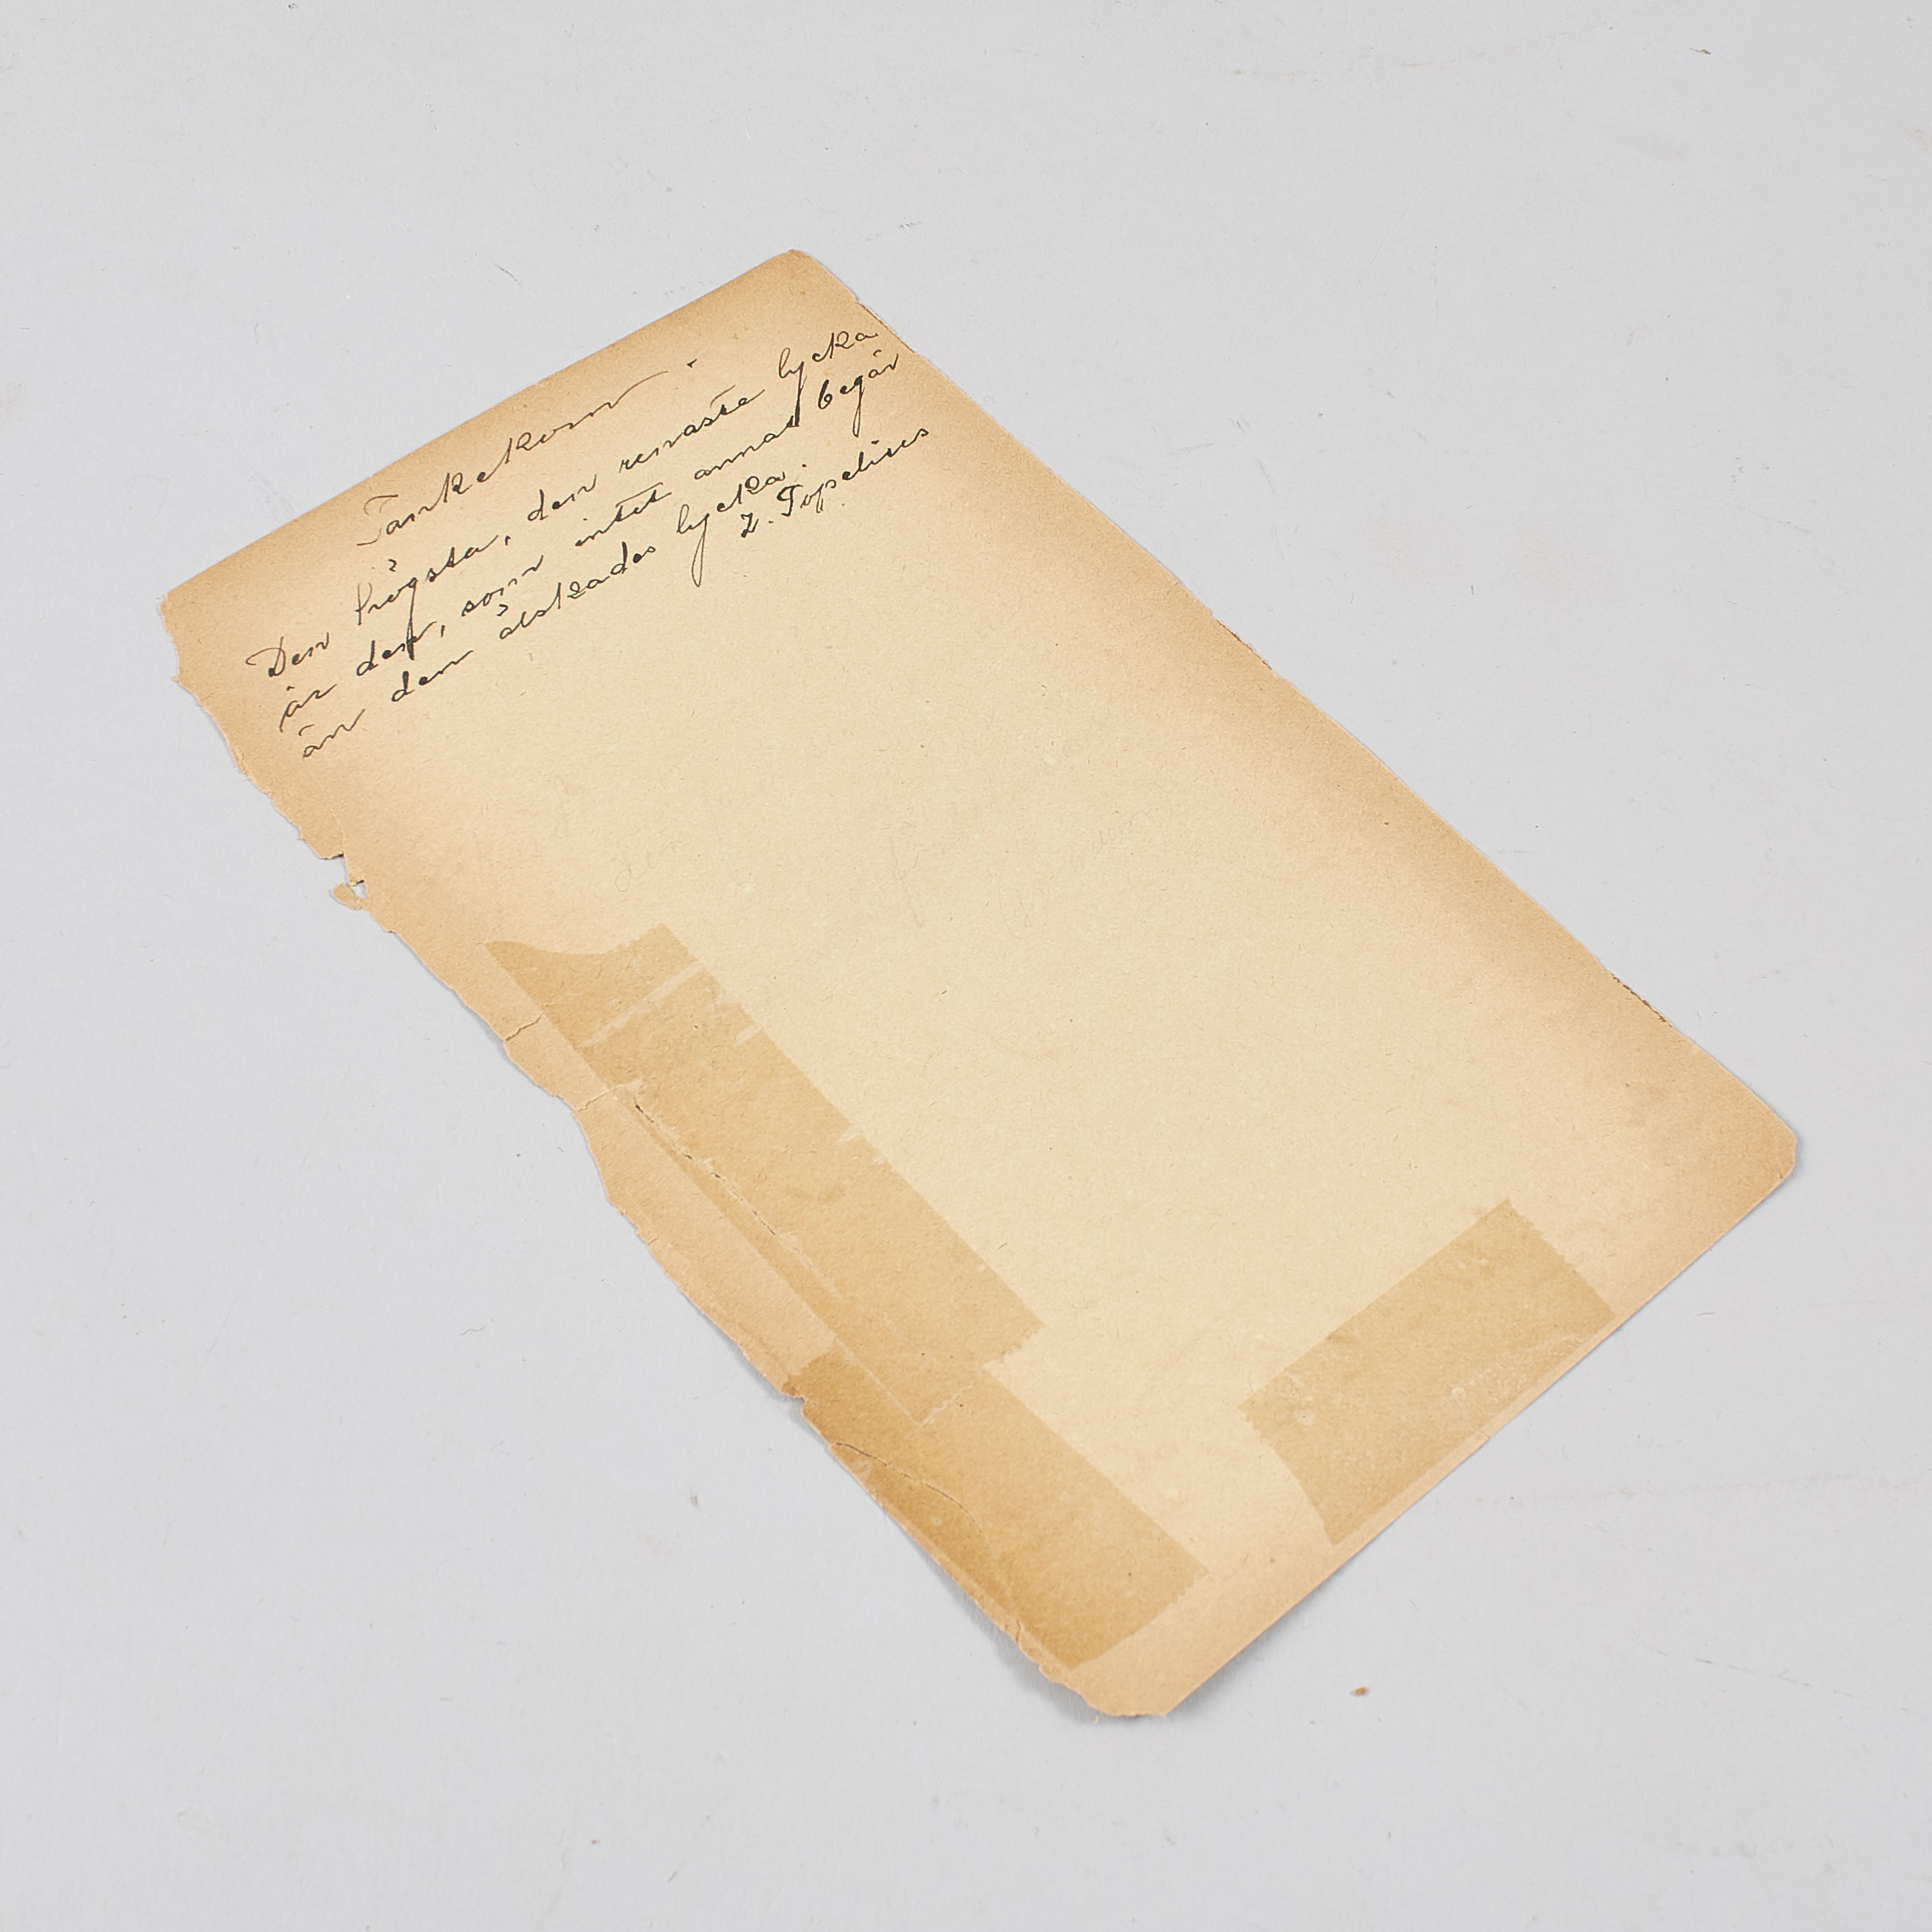 Tankekorn.
Den högsta, den renaste lycka
är den, som intet annat begär
än den älskades lycka.
Z. Topelius